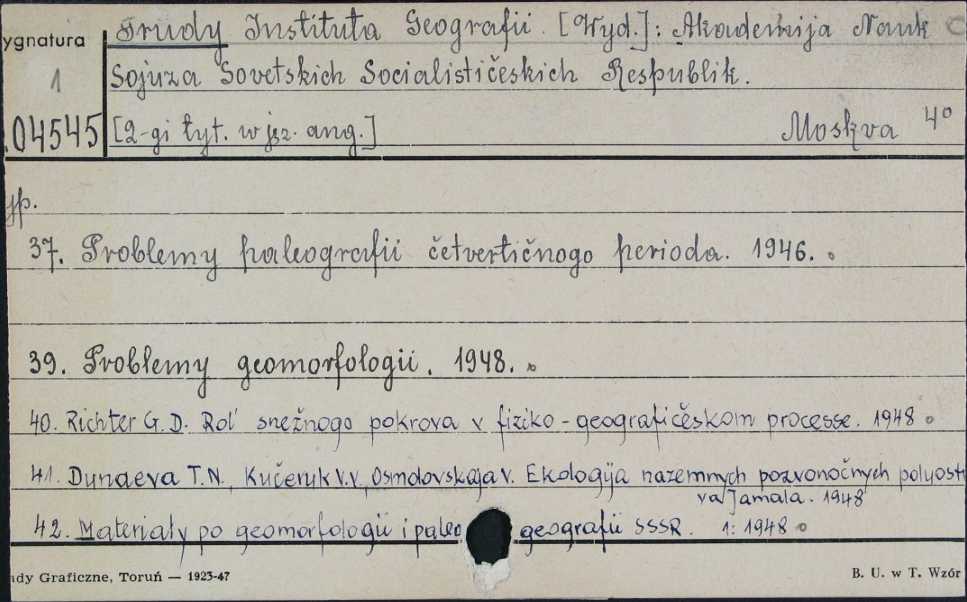 ygnatura
1
04545
Trudy Instituta Geografii. [Wyd.]: Akademija Nauk
Sojuza Sovetskich Socialističeskich Respublik.
[2-gi tyt. w jęz. ang.] Moskva 4°
jp.
37. Problemy paleografii četvertičnogo perioda. 1946.
39. Problemy geomorfologii. 1948.
40. Richter G. D. Rol' snežnogo pokrova v fiziko-geografičeskom processe. 1948
41. Dunaeva T.N., Kučeruk V.V., Osmolovskaja V. Ekologija nazemnych pozvonočnych polyost
va Jamala. 1948
42. Materiały po geomorfologii i paleo geografii SSSR. 1: 1948
dy Graficzne, Toruń — 1923-47
B. U. w T. Wzór